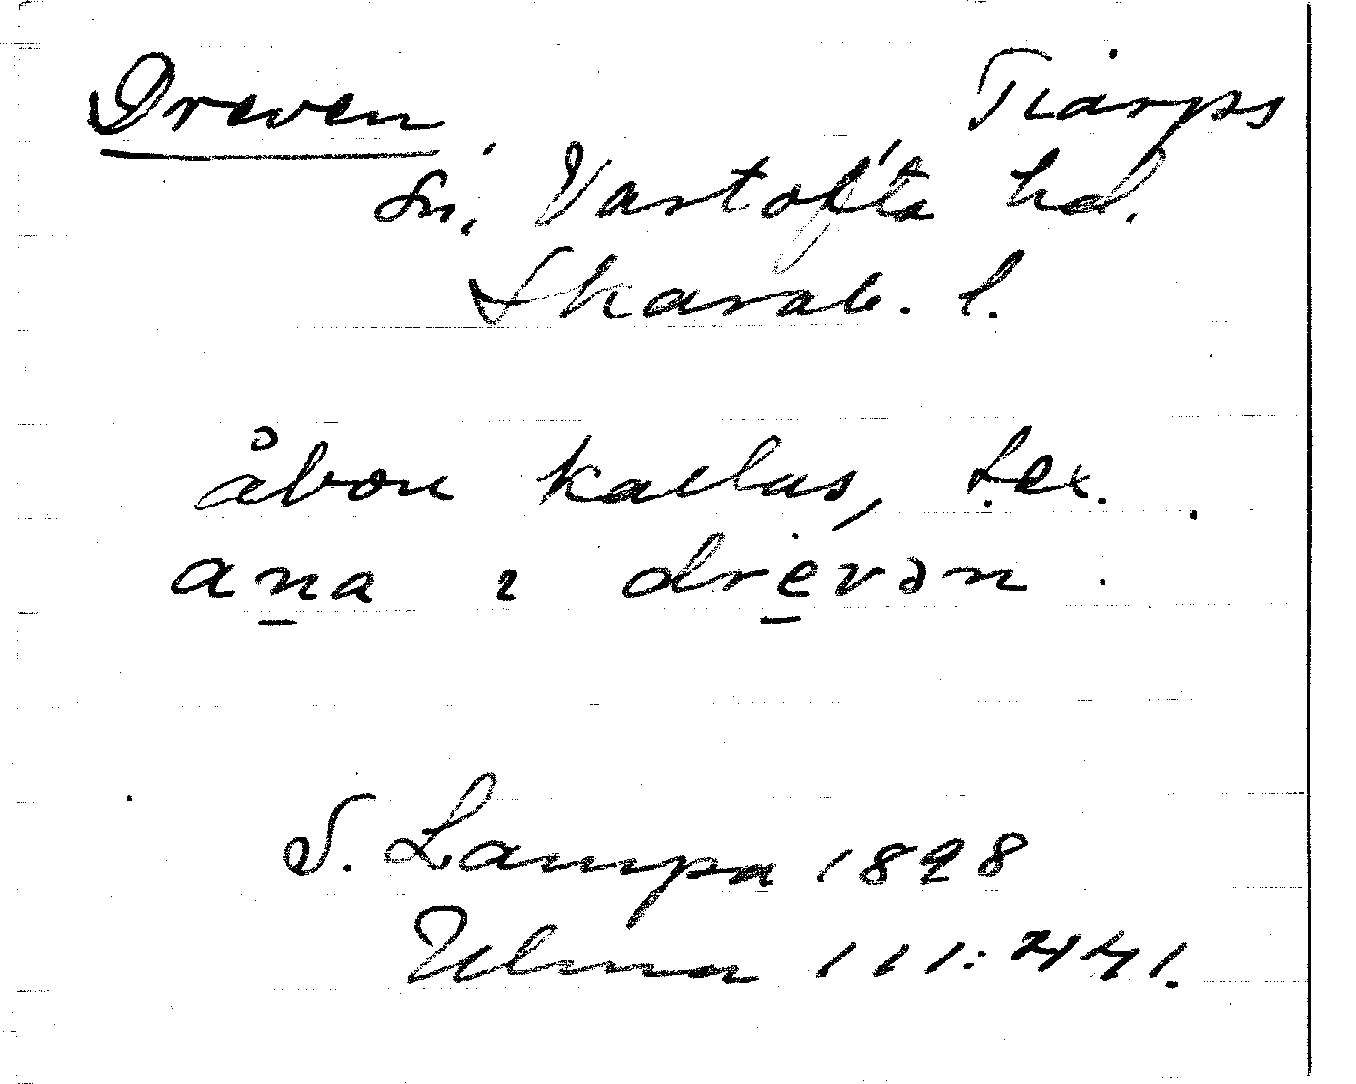 Dreven Tiarps
sn. Vartofta hd.
Skarab. l.
åbon kallas, t.ex.
ana ı drevən.
S. Lampa 1898
Ulma 111:441.